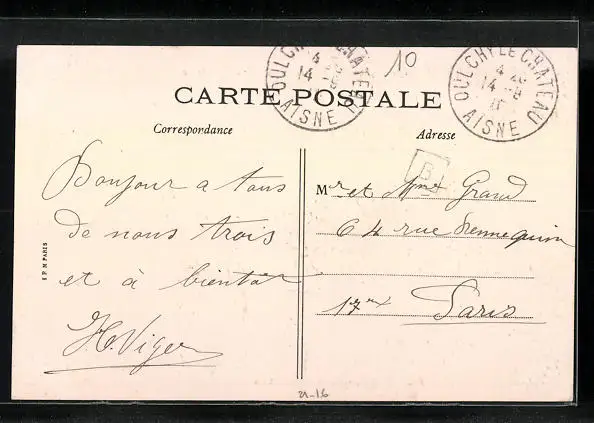 OULCHY LE CHATEAU
4
14
AISNE
10
OULCHY LE CHATEAU
4
14 -8
AISNE
CARTE POSTALE
Correspondance
Adresse
B
Bonjour a tous
de nous trois
et à bientôt
H. Viger
Mr et Mme Grand
64 rue Pennequin
17me Paris
I P M PARIS
21-16